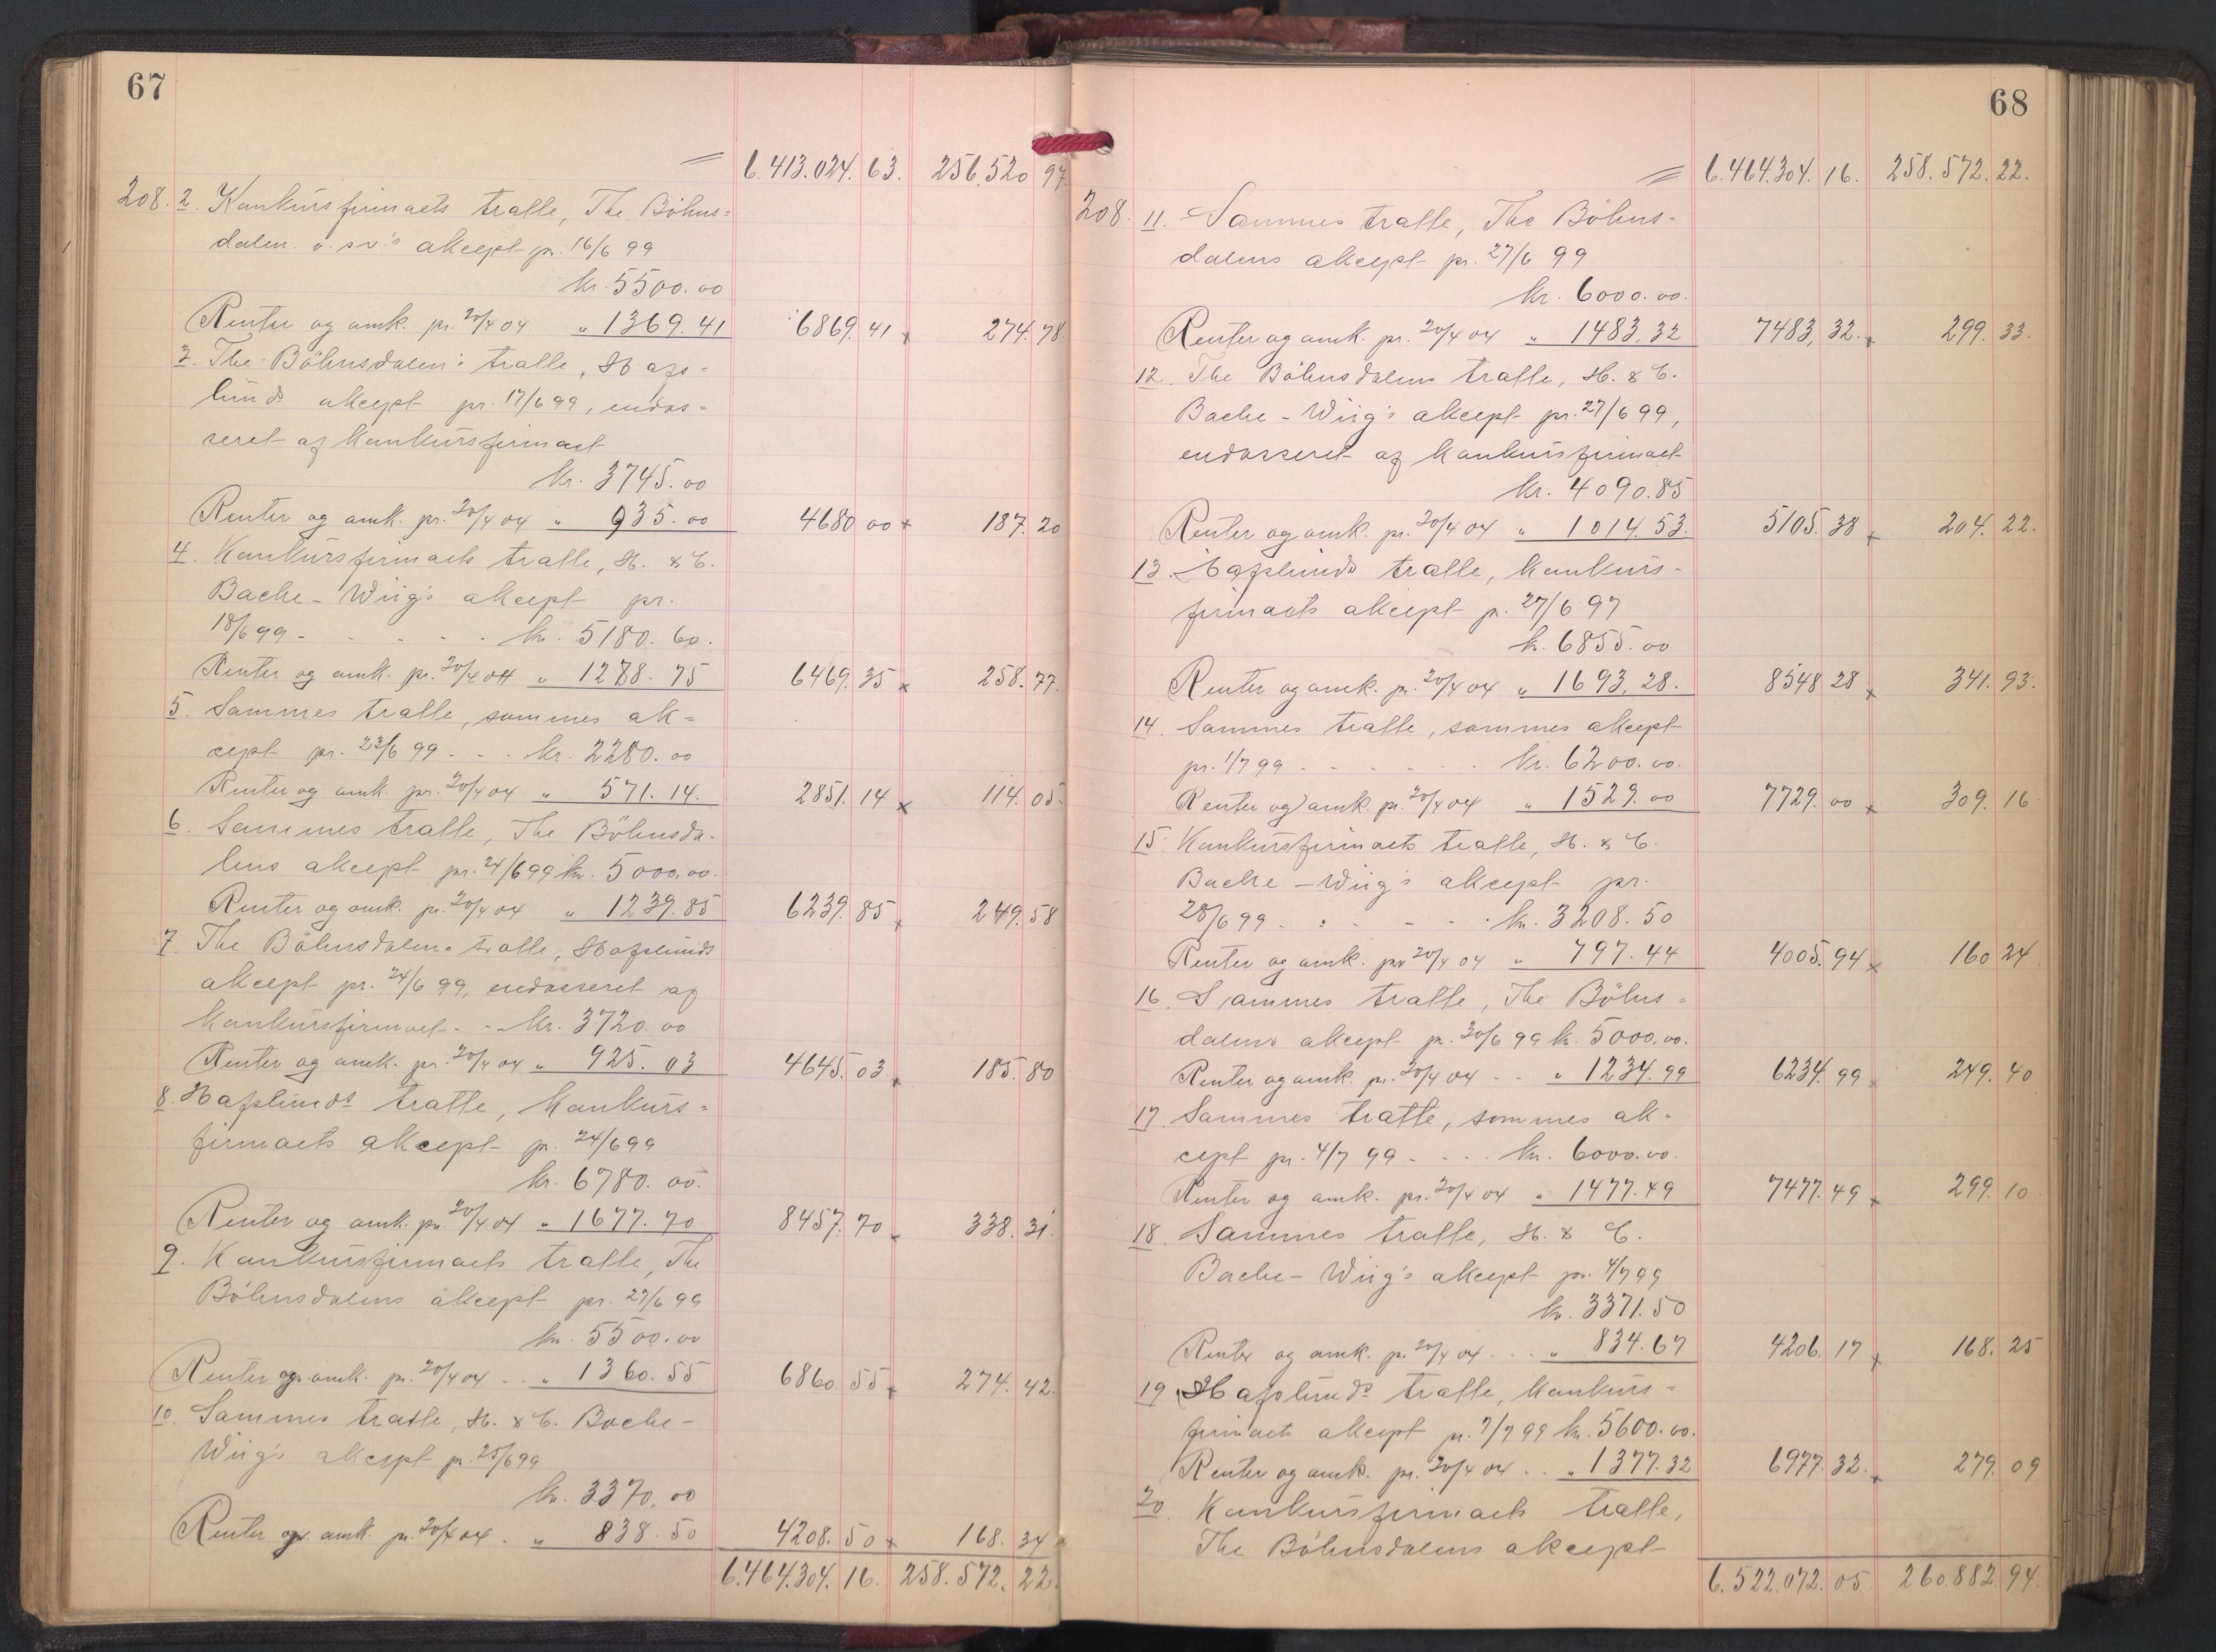 67
= 6.413.024.63. 256.520 97
208. 2. Konkursfirmaets tratte, The Böhns=
dalen. o. s. v.'s akcept pr. 16/6 99
kr. 5500.00
Renter og omk. pr. 20/4 04 " 1369.41 6869.41 x 274.78
3. The Böhnsdalen's tratte, Hafs=
lunds akcept pr. 17/6 99, endos=
seret af konkursfirmaet
kr. 3745.00
Renter og omk. pr. 20/4 04 " 935.00 4680 00 x 187.20
4. Konkursfirmaets tratte, H. & C.
Bache-Wiig's akcept pr.
18/6 99 - - - - - kr. 5180.60.
Renter og omk. pr. 20/4 04 " 1288.75 6469.35 x 258.77.
5. Sammes tratte, sammes ak=
cept pr. 23/6 99 - - - kr. 2280.00
Renter og omk. pr. 20/4 04 " 571.14. 2851.14 x 114.05
6. Sammes tratte, The Böhnsda-
lens akcept pr. 24/6 99 kr. 5000.00.
Renter og omk. pr. 20/4 04 " 1239.85 6239.85 x 249.58
7. The Böhnsdalens tratte, Hafslunds
akcept pr. 24/6 99, endosseret af
konkursfirmaet - - kr. 3720.00
Renter og omk. pr. 20/4 04 " 925.03 4645.03 x 185.80
8. Hafslunds tratte, konkurs=
firmaets akcept pr. 24/6 99
kr. 6780.00.
Renter og omk. pr. 20/4 04 " 1677.70 8457.70 x 338.31.
9. Konkursfirmaets tratte, The
Böhnsdalens akcept pr. 27/6 99
kr. 5500.00
Renter og omk. pr. 20/4 04 . . " 1360.55 6860.55 x 274.42.
10. Sammes tratte, H. & C. Bache-
Wiig's akcept pr. 25/6 99
kr. 3370.00
Renter og omk. pr. 20/4 04 . " 838.50 4208.50 x 168.34
6.464.304.16. 258.572.22.
68
= 6.464.304.16. 258.572.22.
208. 11. Sammes tratte, The Böhns-
dalens akcept pr. 27/6 99
kr. 6000.00.
Renter og omk. pr. 20/4 04 " 1483.32 7483,32. x 299.33.
12. The Böhnsdalens tratte, H. & C.
Bache-Wiig's akcept pr. 27/6 99,
endosseret af konkursfirmaet
kr. 4090.85
Renter og omk. pr. 20/4 04 " 1014.53. 5105.38 x 204.22.
13. Hafslunds tratte, konkurs-
firmaets akcept pr. 27/6 97
kr. 6855.00
Renter og omk. pr. 20/4 04 " 1693.28. 8548 28 x 341.93.
14. Sammes tratte, sammes akcept
pr. 1/7 99 - - - - - - kr. 6200.00.
Renter og omk. pr. 20/4 04 " 1529.00 7729.00 x 309.16
15. Konkursfirmaets tratte, H. & C.
Bache-Wiig's akcept pr.
28/6 99 - - - - - kr. 3208.50
Renter og omk. pr. 20/4 04 " 797.44 4005.94 x 160 24
16. Sammes tratte, The Böhns=
dalens akcept pr. 30/6 99 kr. 5000.00.
Renter og omk. pr. 20/4 04 - - " 1234.99 6234.99 x 249.40
17. Sammes tratte, sammes ak-
cept pr. 4/7 99 - - - - kr. 6000.00.
Renter og omk. pr. 20/4 04 " 1477.49 7477.49 x 299.10
18. Sammes tratte, H. & C.
Bache-Wiig's akcept pr. 4/7 99
kr. 3371.50
Renter og omk. pr. 20/4 04 . . . " 834.67 4206.17 x 168.25
19. Hafslunds tratte, konkurs=
firmaets akcept pr. 7/7 99 kr. 5600.00.
Renter og omk. pr. 20/4 04 . . " 1377.32 6977.32. x 279.09
20. Konkursfirmaets tratte,
The Böhnsdalens akcept
6.522.072.05 260.882.94.